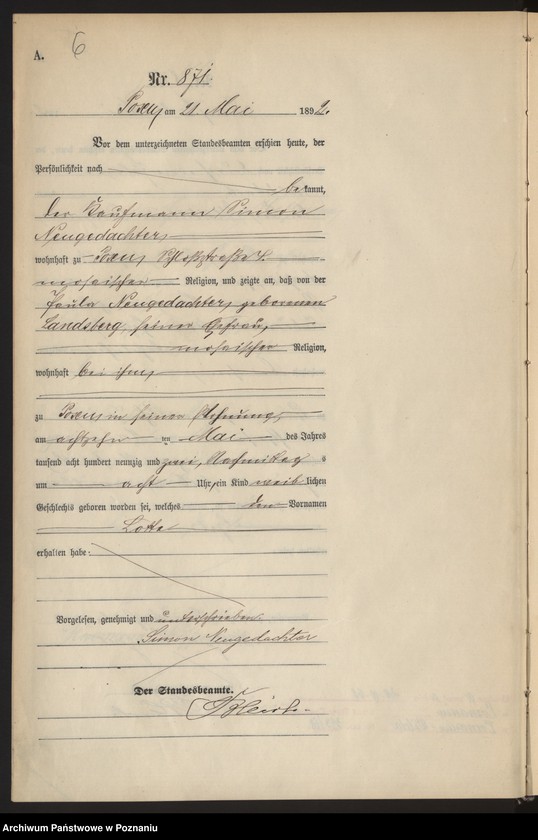 A.
6
Nr. 871.
Posen, am 21 Mai 1892.
Vor dem unterzeichneten Standesbeamten erschien heute, der
Persönlichkeit nach
bekannt,
der Kaufmann Simon
Neugedachter,
wohnhaft zu Posen Schloßstraße 4.
mosaischer Religion, und zeigte an, daß von der
Paula Neugedachter, geborenen
Landsberg, seiner Ehefrau,
mosaischer Religion,
wohnhaft bei ihm,
zu Posen in seiner Wohnung,
am achtzehn ten Mai des Jahres
tausend acht hundert neunzig und zwei, Nachmittag s
um acht Uhr, ein Kind weib lichen
Geschlechts geboren worden sei, welches den Vornamen
Lotte
erhalten habe.
Vorgelesen, genehmigt und unterschrieben.
Simon Neugedachter
Der Standesbeamte.
Archiwum Państwowe w Poznaniu